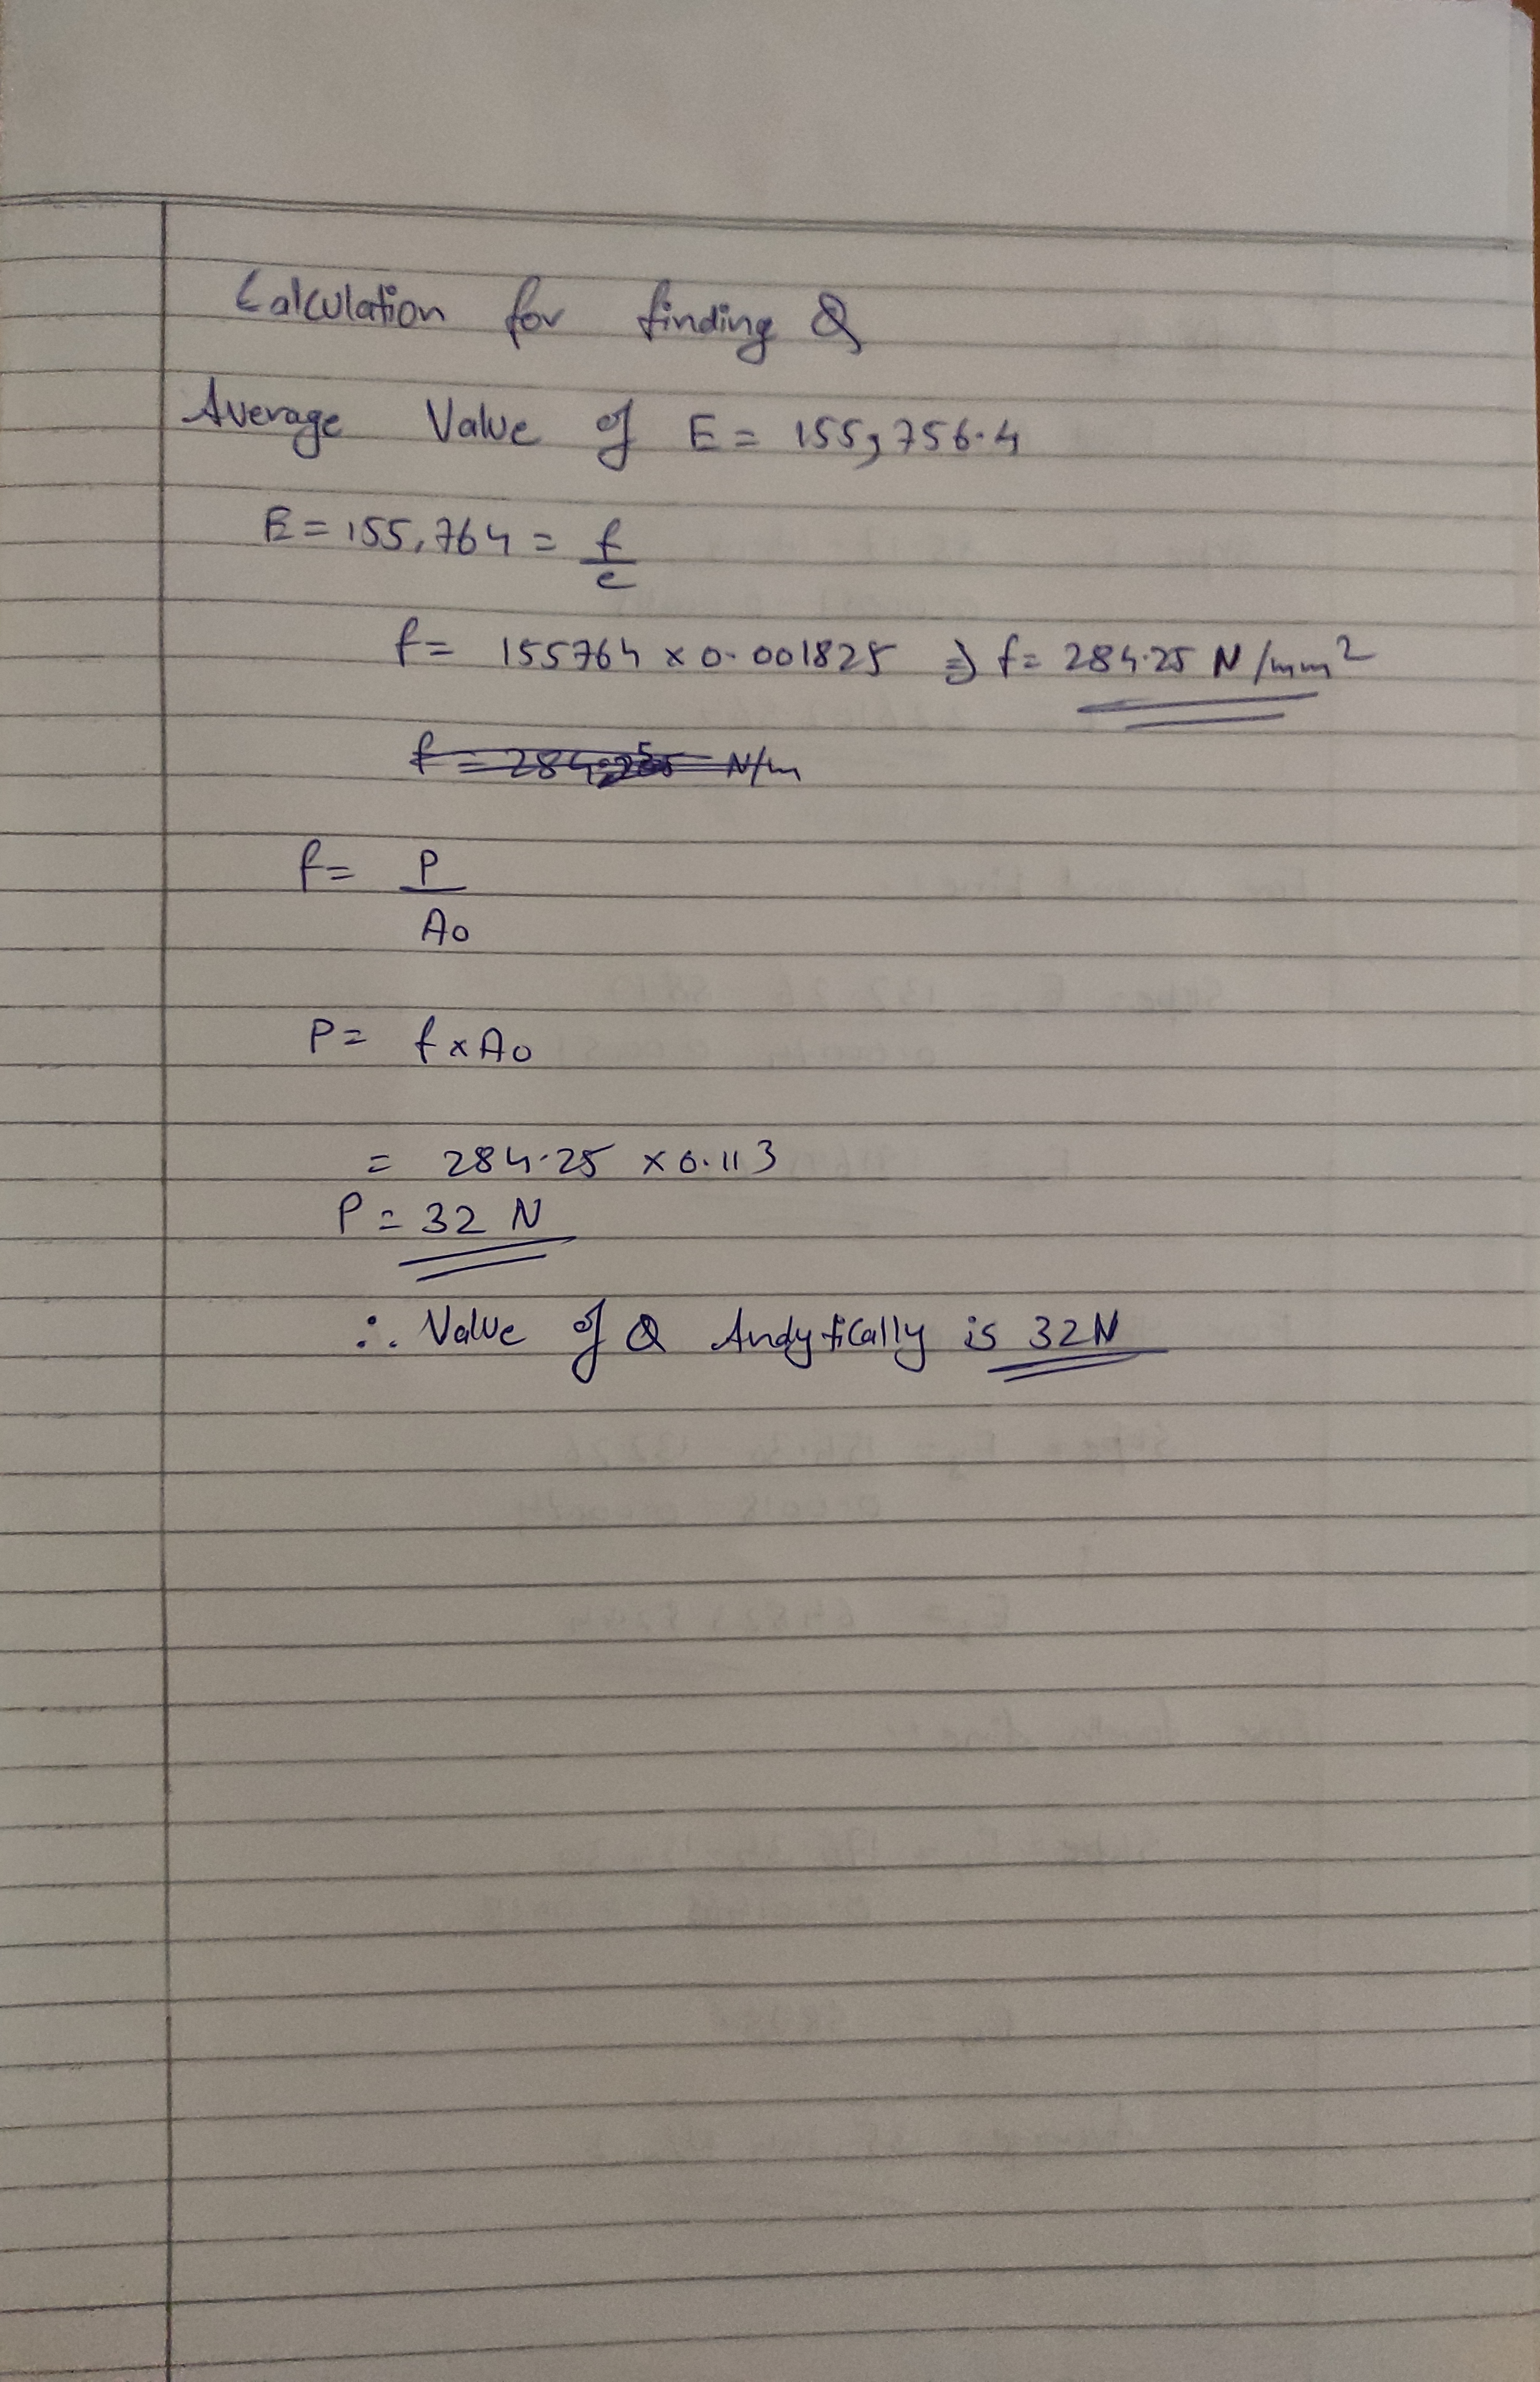 Calculation for finding Q
Average Value of E = 155,756.4
E = 155,764 = f/e
f = 155764 x 0.001825 => f = 284.25 N/mm²
f = P/Ao
P = f x Ao
= 284.25 x 0.113
P = 32 N
∴ Value of Q Andytically is 32N